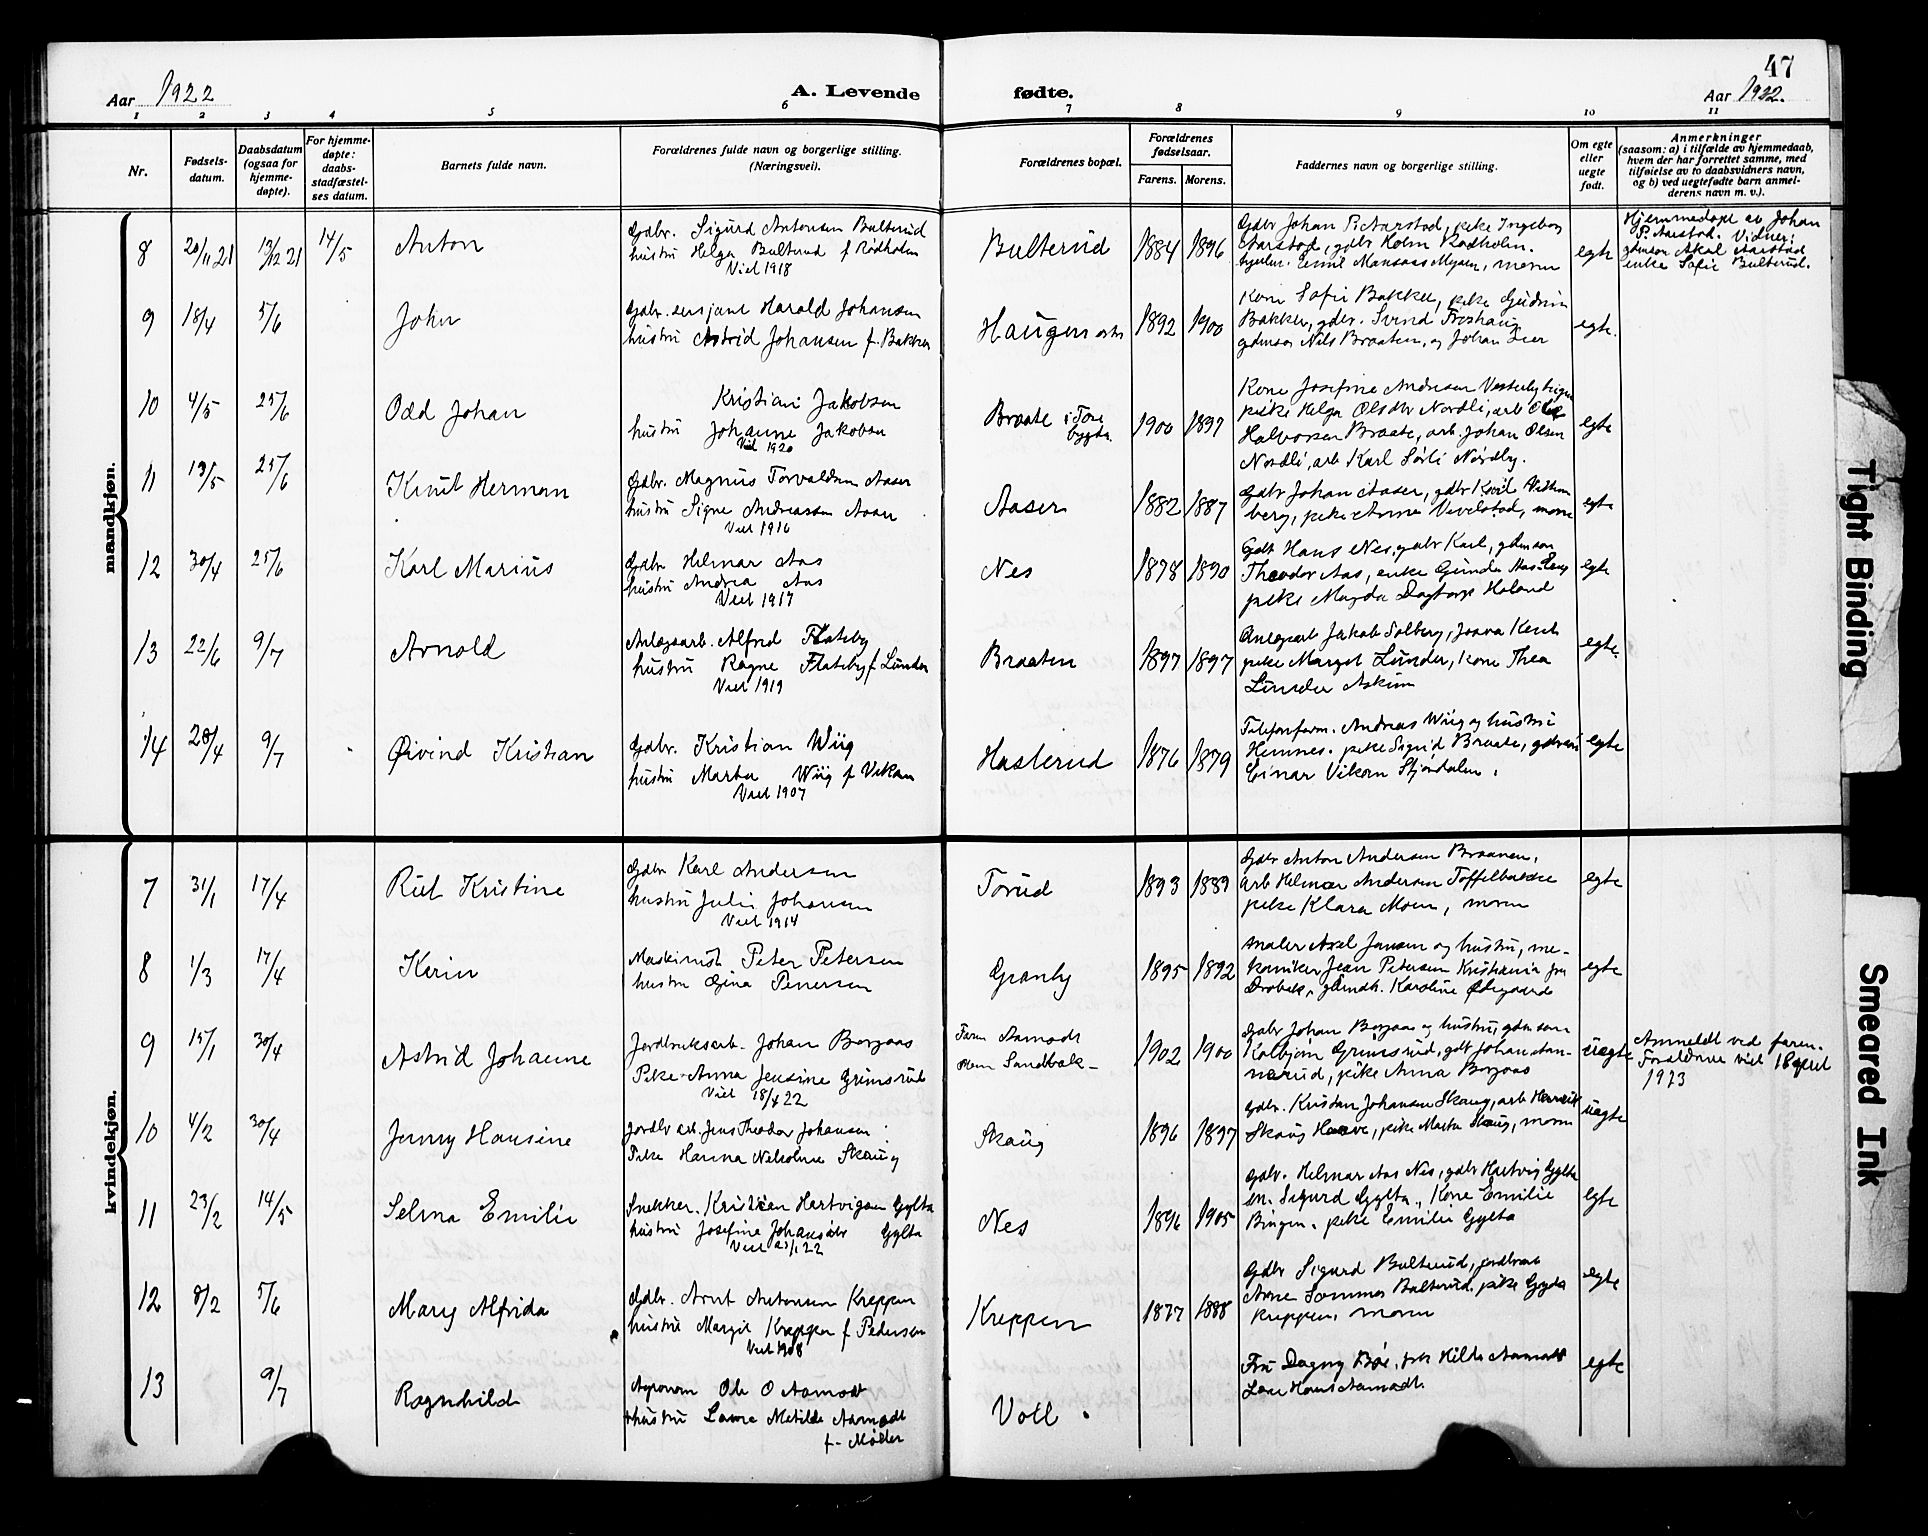 47
Aar 1922
A. Levende
fødte.
Aar 1922.
1 2 3 4 5 6 7 8 9 10 11
Nr.
Fødsels-
datum.
Daabsdatum
(ogsaa for
hjemme-
døpte).
For hjemme-
døpte:
daabs-
stadfæstel-
ses datum.
Barnets fulde navn.
Forældrenes fulde navn og borgerlige stilling.
(Næringsvei).
Forældrenes bopæl.
Forældrenes
fødselsaar.
Farens. Morens.
Faddernes navn og borgerlige stilling.
Om egte
eller
uegte
født.
Anmerkninger
(saasom: a) i tilfælde av hjemmedaab,
hvem der har forrettet samme, med
tilføielse av to daabsvidners navn,
og b) ved uegtefødte barn anmel-
derens navn m. v.).
mandkjøn.
8 20/11 21 13/12 21 14/5 Anton
Gdbr. Sigurd Antonsen Bulterud
hustru Helga Bulterud f Rødholm
Viet 1918
Bulterud 1884 1896
Gdbr Johan P. Aarstad, pike Ingeborg
Aarstad, gdbr Holm Rødholm.
Emil Mansaas Mysen, moren
egte
Hjemmedøpt av Johan
P. Aarstad. Vidner:
gdmson Aksel Aarstad
enke Sofie Bulterud.
9 18/4 5/6 John
Gdbr. sersjant Harald Johansen
hustru Astrid Johansen f. Bakker
Haugen 1892 1900
Kone Sofie Bakker, pike Gudrun
Bakker, gdbr. Svend Froshaug
gdmson Nils Braaten, og Johan Lier
egte.
10 4/5 25/6 Odd Johan
Kristian Jakobsen
hustru Johanne Jakobsen
Viet 1920
Braate i Tore
bygda 1900 1897
Kone Josefine Andresen Vesterby
pike Helga Olsdtr Nordli, arb Ole
Halvorsen Braate, arb. Johan Olsen
Nordli, arb Karl Sørli Nordby.
egte
11 13/5 25/6 Knut Herman
Gdbr. Magnus Torvaldsen Aaser
hustru Signe Andreassen Aaser
Viet 1916
Aaser 1882 1887
Gdbr Johan Aaser, gdbr
berg, pike Anna Vevelstad, moren
egte
12 30/4 25/6 Karl Marius
Gdbr Helmar Aas
hustru Andrea Aas
Viet 1917
Nes 1878 1890
Gdbr Hans Nes, gdbr Karl, gdmson
Theodor Aas, enke Gunda Aas
pike Magda Dagtorp Høland
egte
13 22/6 9/7 Arnold
Anlægsarb. Alfred Flateby
hustru Ragna Flateby f Lunder
Viet 1919
Braaten 1897 1897
Anlægsarb Jakob Solberg,
pike Margot Lunder, kone Thea
Lunder Askim
egte.
14 28/4 9/7 Øivind Kristian
Gdbr. Kristian Wiig
hustru Marta Wiig f Vikan
Viet 1907
Hasterud 1876 1879
Telefonform. Andreas Wiig og hustru
Hemnes. pike Sigrid Braate,
Einar Vikan Stjørdalen.
egte
kvindekjøn.
7 31/1 17/4 Rut Kristine
Gdbr Karl Andersen
hustru Julie Johansen
Viet 1914
Torud 1893 1889
Gdbr Anton Andersen Braanen,
arb Helmer Andersen Toffelbakke
pike Klara Moen, moren
egte
8 1/3 17/4 Karin
Maskinist Peter Petersen
hustru Gina Petersen
Granby 1895 1892
maler Axel Jansen og hustru, me-
kaniker Jean Petersen Kristiania fru
Karoline Ødegaard
egte
9 15/1 30/4 Astrid Johanne
Jordbruksarb. Johan Borgaas
Pike Anna Jensine Grimsrud
Viet 18/4 22
Faren Aamodt
Moren Sandbæk 1902 1900
Gdbr Johan Borgaas og hustru, gdmson
Kolbjørn Grimsrud, gdbr Johan Aam-
nærud, pike Anna Borgaas
uegte
Anmeldt ved faren.
Forældrene viet 18 april
1923
10 4/2 30/4 Jenny Hansine
Jordbr arb. Jens Theodor Johansen
Pike Hanna Nekoline Skaug
Skaug 1896 1897
Gdbr. Kristian Johansen Skaug, arb Henrik
Skaug, pike Marta Skaug, moren
uegte
11 23/2 14/5 Selma Emilie
Snekker. Kristian Hartvigsen Gylta
hustru Josefine Johansdtr Gylta
Viet 1922
Nes 1896 1905
Gdbr. Helmar Aas Nes, gdbr Hartvig Gylta
Sigurd Gylta, Kone Emilie
Bingen, pike Emilie Gylta
egte
12 8/2 5/6 Mary Alfrida
Gdbr. Arnt Antonsen Kreppen
hustru Margit Kreppen f Pedersen
Viet 1908
Kreppen 1877 1888
Gdbr Sigurd Bulterud, jordbrarb
Arne Sommer Bulterud. pike Gyda
Kreppen, moren
egte
13 9/7 Ragnhild
Agronom Ole O Aamodt
hustru Laura Matilde Aamodt
f. Møller
Voll.
Fru Dagny Bøe, frk Hilda Aamodt
Hans Aamodt.
egte
Tight Binding
Smeared Ink